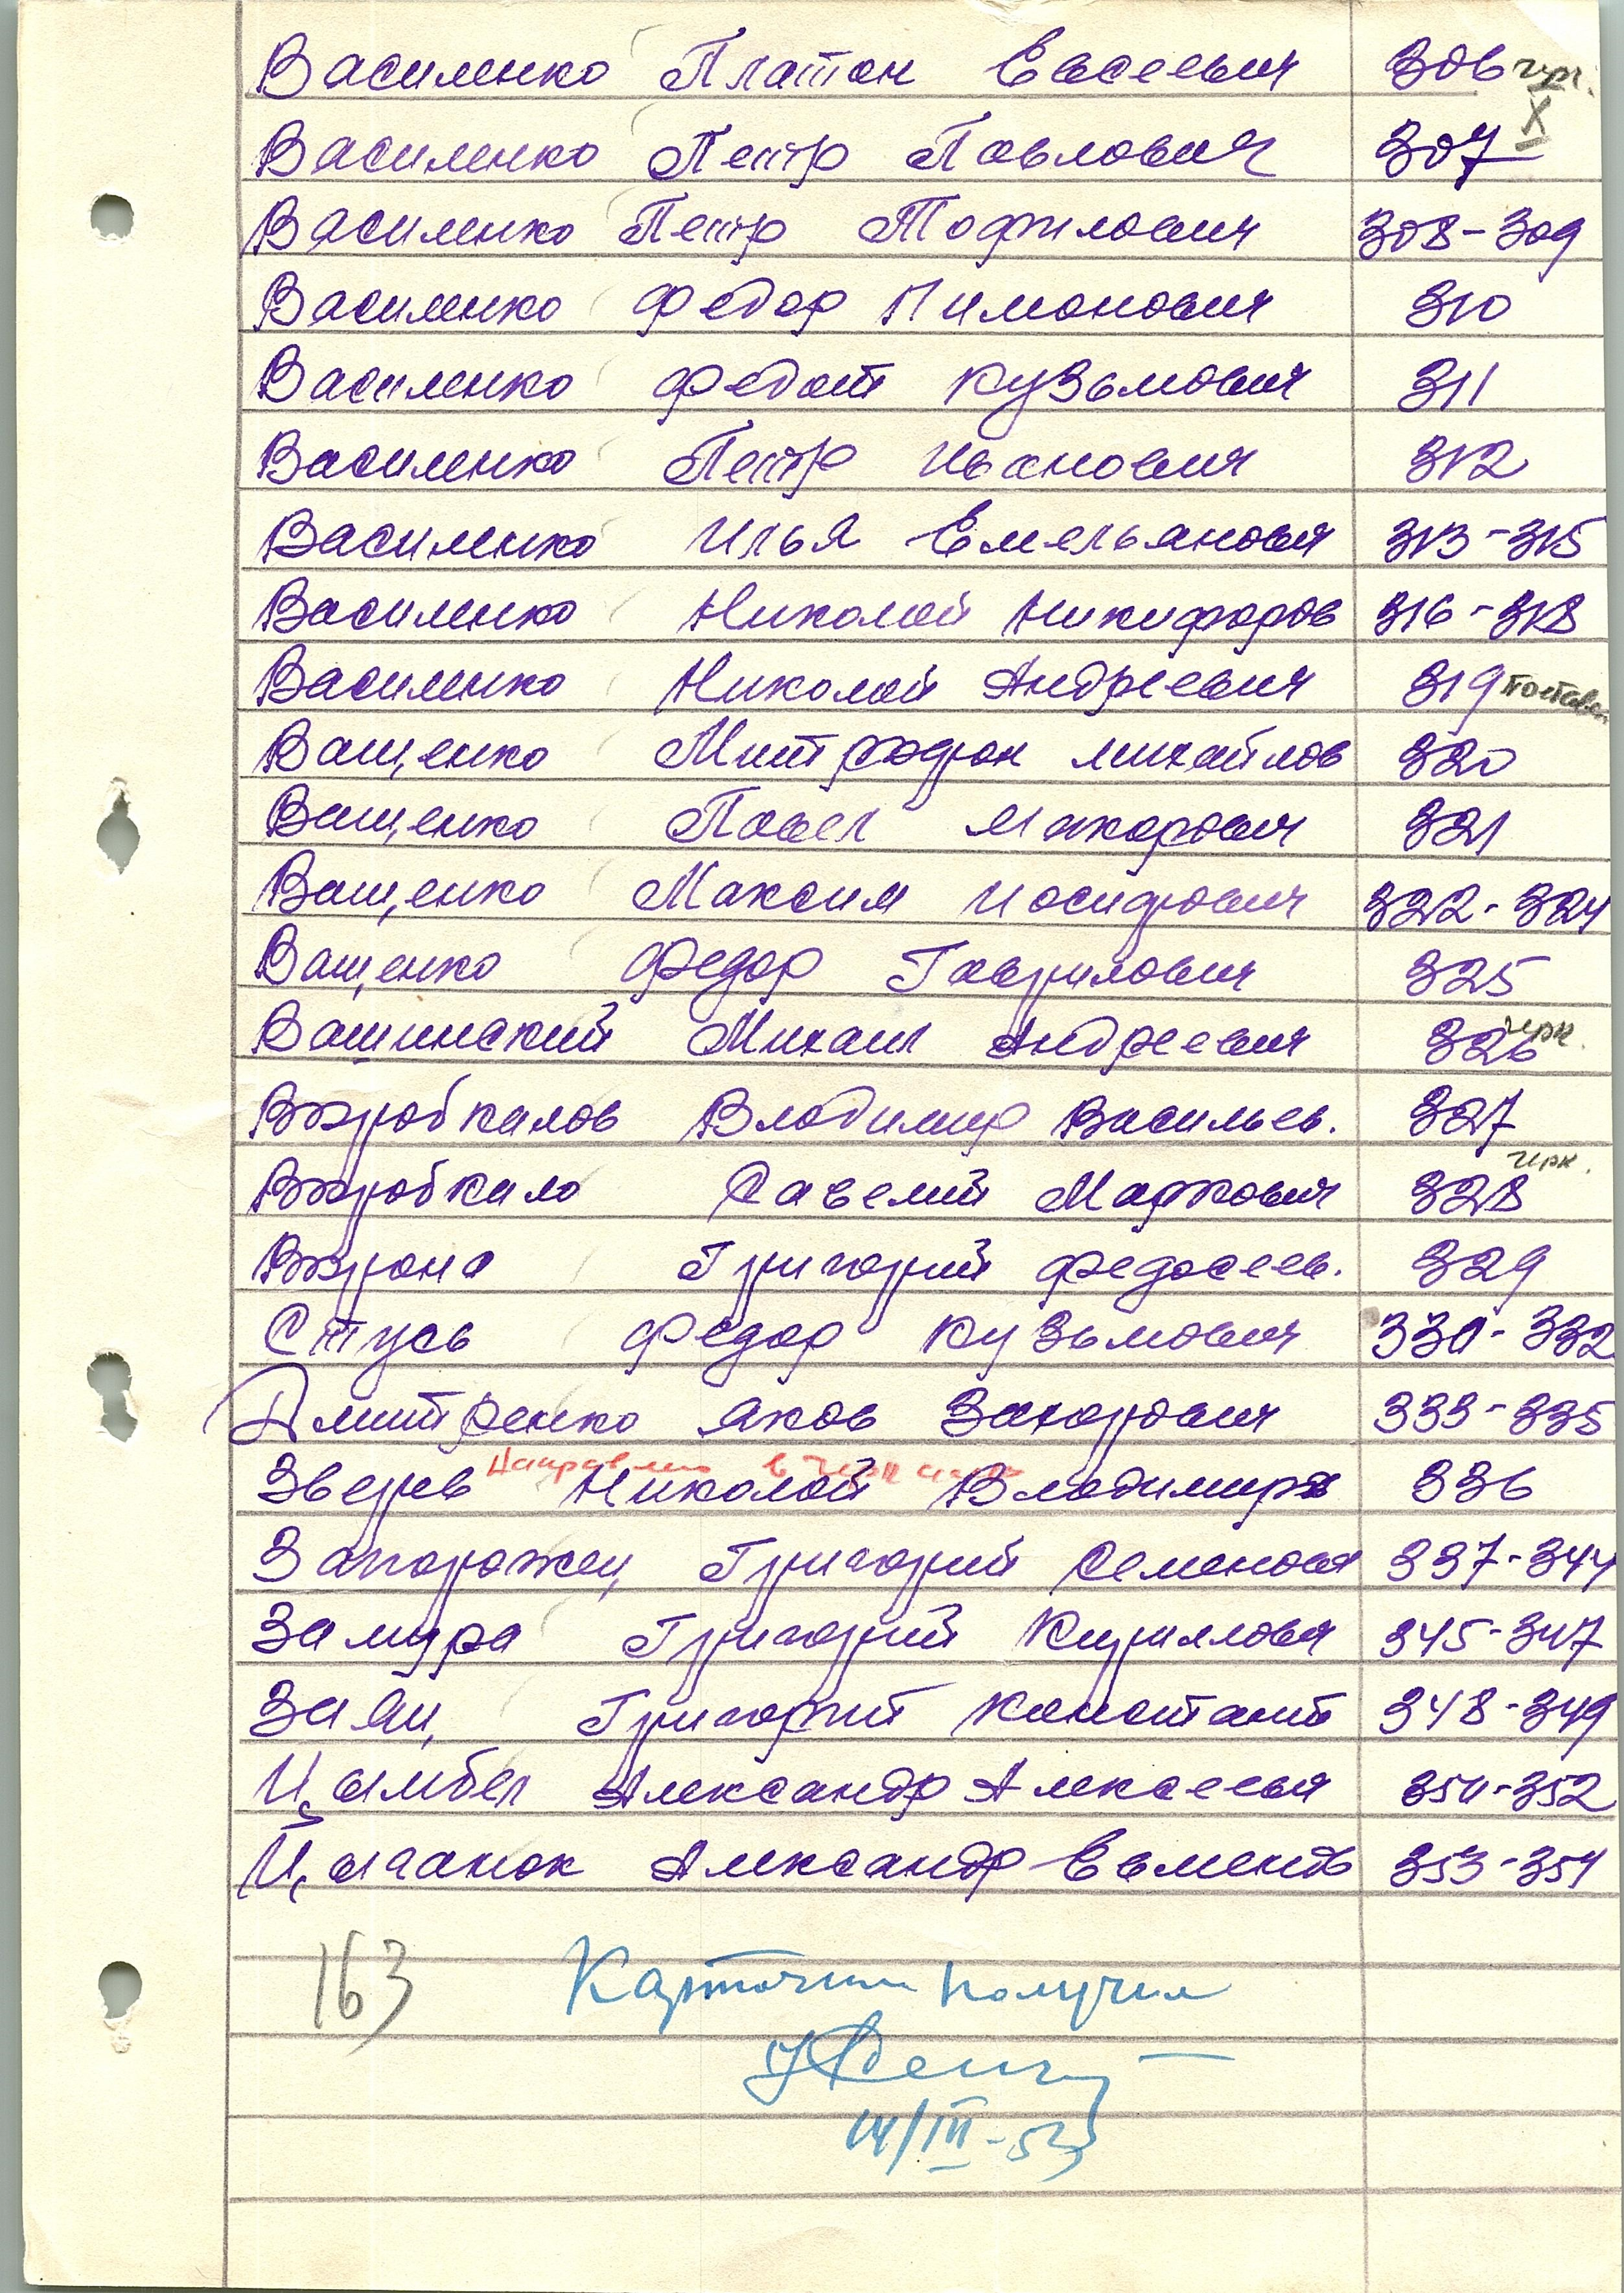 Василенко Платон Евсеевич 306 чрк.
X
Василенко Петр Павлович 307
Василенко Петр Тофилович 308-309
Василенко Федор Пимонович 310
Василенко Федот Кузьмович 311
Василенко Петр Иванович 312
Василенко Илья Емельянович 313-315
Василенко Николай Никифоров 316-318
Василенко Николай Андреевич 319
Ващенко Митрофан Михайлов 320
Ващенко Павел Макарович 321
Ващенко Максим Иосифович 322-324
Ващенко Федор Гаврилович 325
Вашинский Михаил Андреевич 326 чрк.
Вжробкалов Владимир Васильев. 327
Вжробкало Савелий Маркович 328 чрк.
Вжрона Григорий Федосеев. 329
Стусь Федор Кузьмович 330-332
Дмитренко Яков Захарович 333-335
Направлено в
Зверев Николай Владимиров 336
Запорожец Григорий Семенович 337-344
Замура Григорий Кириллович 345-347
Заяц Григорий Константи 348-349
Цымбал Александр Алексеевич 350-352
Цыганок Александр Евменов 353-354
163 Карточки получил
14/III-53